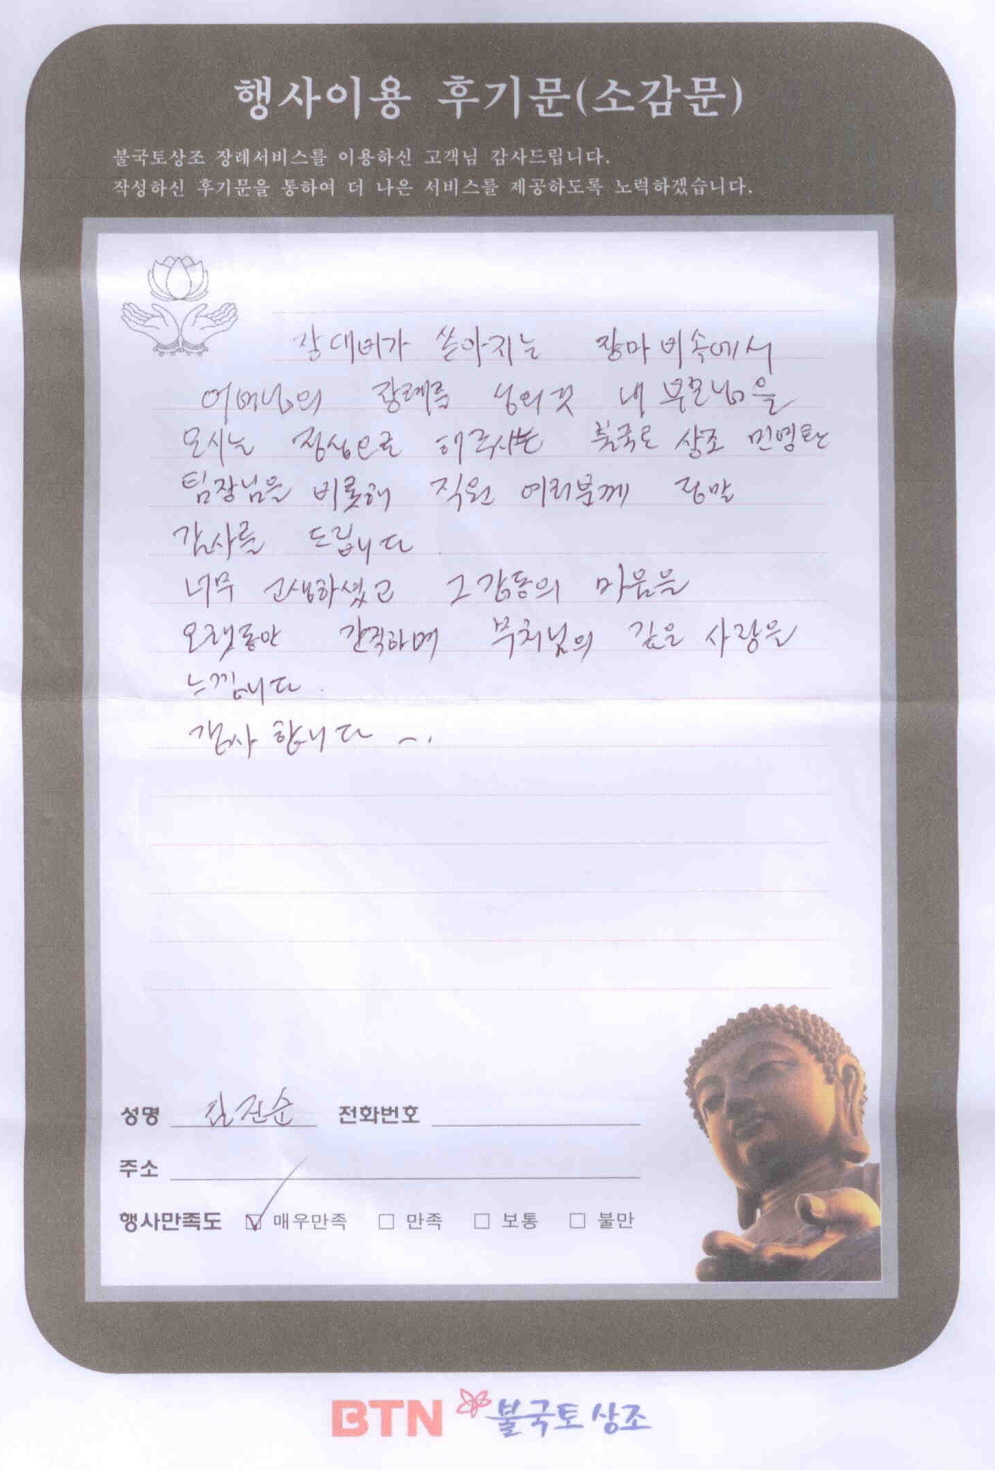 행사이용 후기문(소감문)
불국토상조 장례서비스를 이용하신 고객님 감사드립니다.
작성하신 후기문을 통하여 더 나은 서비스를 제공하도록 노력하겠습니다.
장대비가 쏟아지는 장마 비속에서
어머님의 장례를 내 부모님을
모시는 정성으로 해주시는 불국토 상조
팀장님을 비롯해 직원 여러분께 정말
감사를 드립니다
너무 고생하셨고 그 감동의 마음을
오랫동안 간직하며 부처님의 깊은 사랑을
느낍니다.
감사 합니다
성명 전화번호
주소
행사만족도 매우만족 만족 보통 불만
BTN 불국토상조